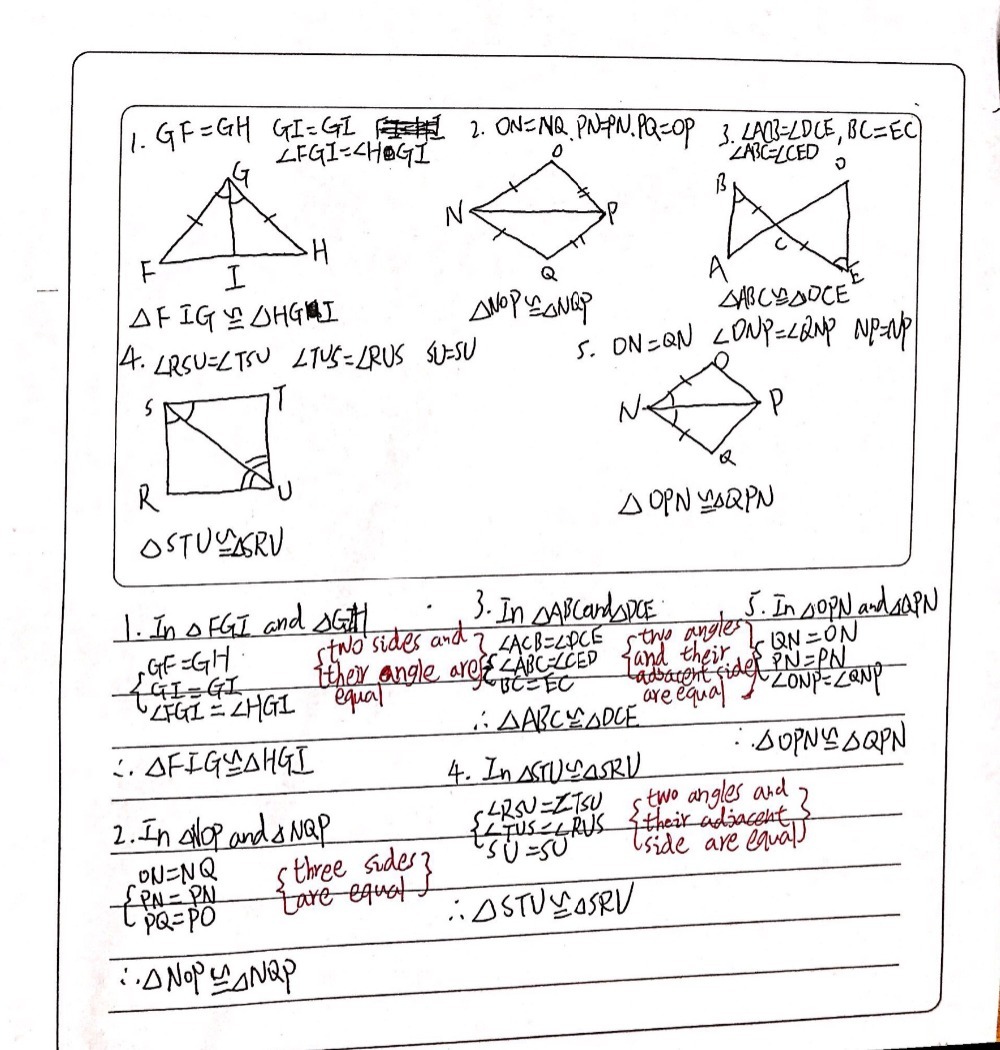 1. GF=GH GI=GI
∠FGI=∠HGI
G
F
I
H
△FIG≌△HGI
2. ON=NQ, PN=PN, PQ=OP
O
N
P
Q
△NOP≌△NQP
3. ∠ACB=∠DCE, BC=EC
∠ABC=∠CED
B
D
C
A
E
△ABC≌△DCE
4. ∠RSU=∠TSU ∠TUS=∠RUS SU=SU
S
T
R
U
△STU≌△SRU
5. ON=QN ∠ONP=∠QNP NP=NP
O
N
P
Q
△OPN≌△QPN
1. In △FGI and △GIH
GF=GH
GI=GI
∠FGI=∠HGI
two sides and
their angle are
equal
∴ △FIG≌△HGI
2. In △NOP and △NQP
ON=NQ
PN=PN
PQ=PO
three sides
are equal
∴ △NOP≌△NQP
3. In △ABC and △DCE
∠ACB=∠DCE
∠ABC=∠CED
BC=EC
two angles
and their
adjacent side
are equal
∴ △ABC≌△DCE
4. In △STU≌△SRU
∠RSU=∠TSU
∠TUS=∠RUS
SU=SU
two angles and
their adjacent
side are equal
∴ △STU≌△SRU
5. In △OPN and △QPN
QN=ON
PN=PN
∠ONP=∠QNP
∴ △OPN≌△QPN